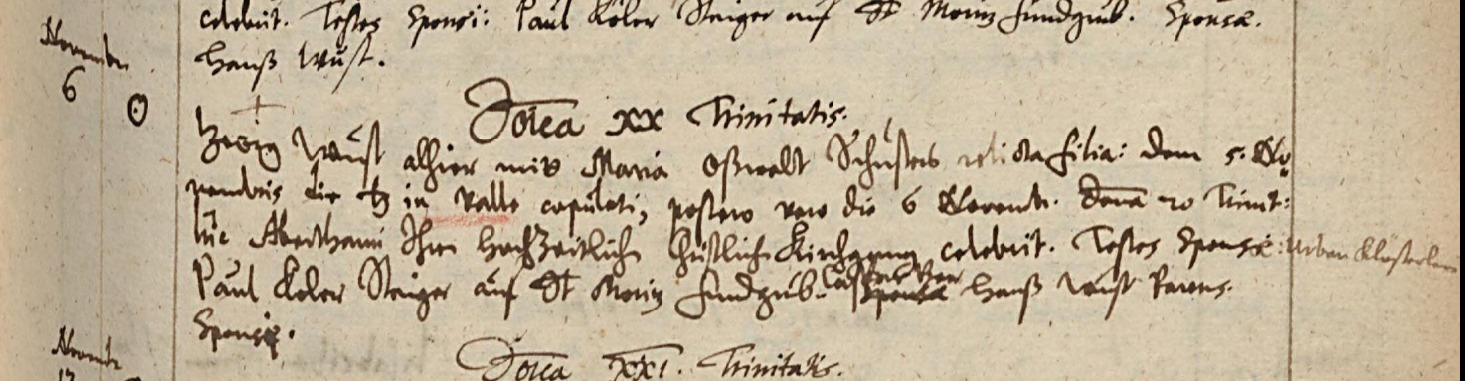 celebrit. Testes Sponsi: Paul Köler Steiger auf St Moritz fundgrub. Sponsae.
Hanß Wüst.
November
6 ☉
Doica XX Trinitatis.
Georg Wüst alhier mit Maria Oßwalt Schusters relicta filia: dem 5. No=
vembris die ♄ in Valle copulati, postero vero die 6 Novemb. Doica 20 Trinit:
hic Aberthami Ihren Hochzeitlich Christlich Kirchgang celebrit. Testes Sponsae: Urban
Paul Köler Steiger auf St Moritz fundgrub. Sponsa Hanß Wüst Parens.
Sponsi.
Novemb
Doica XXI. Trinitatis.